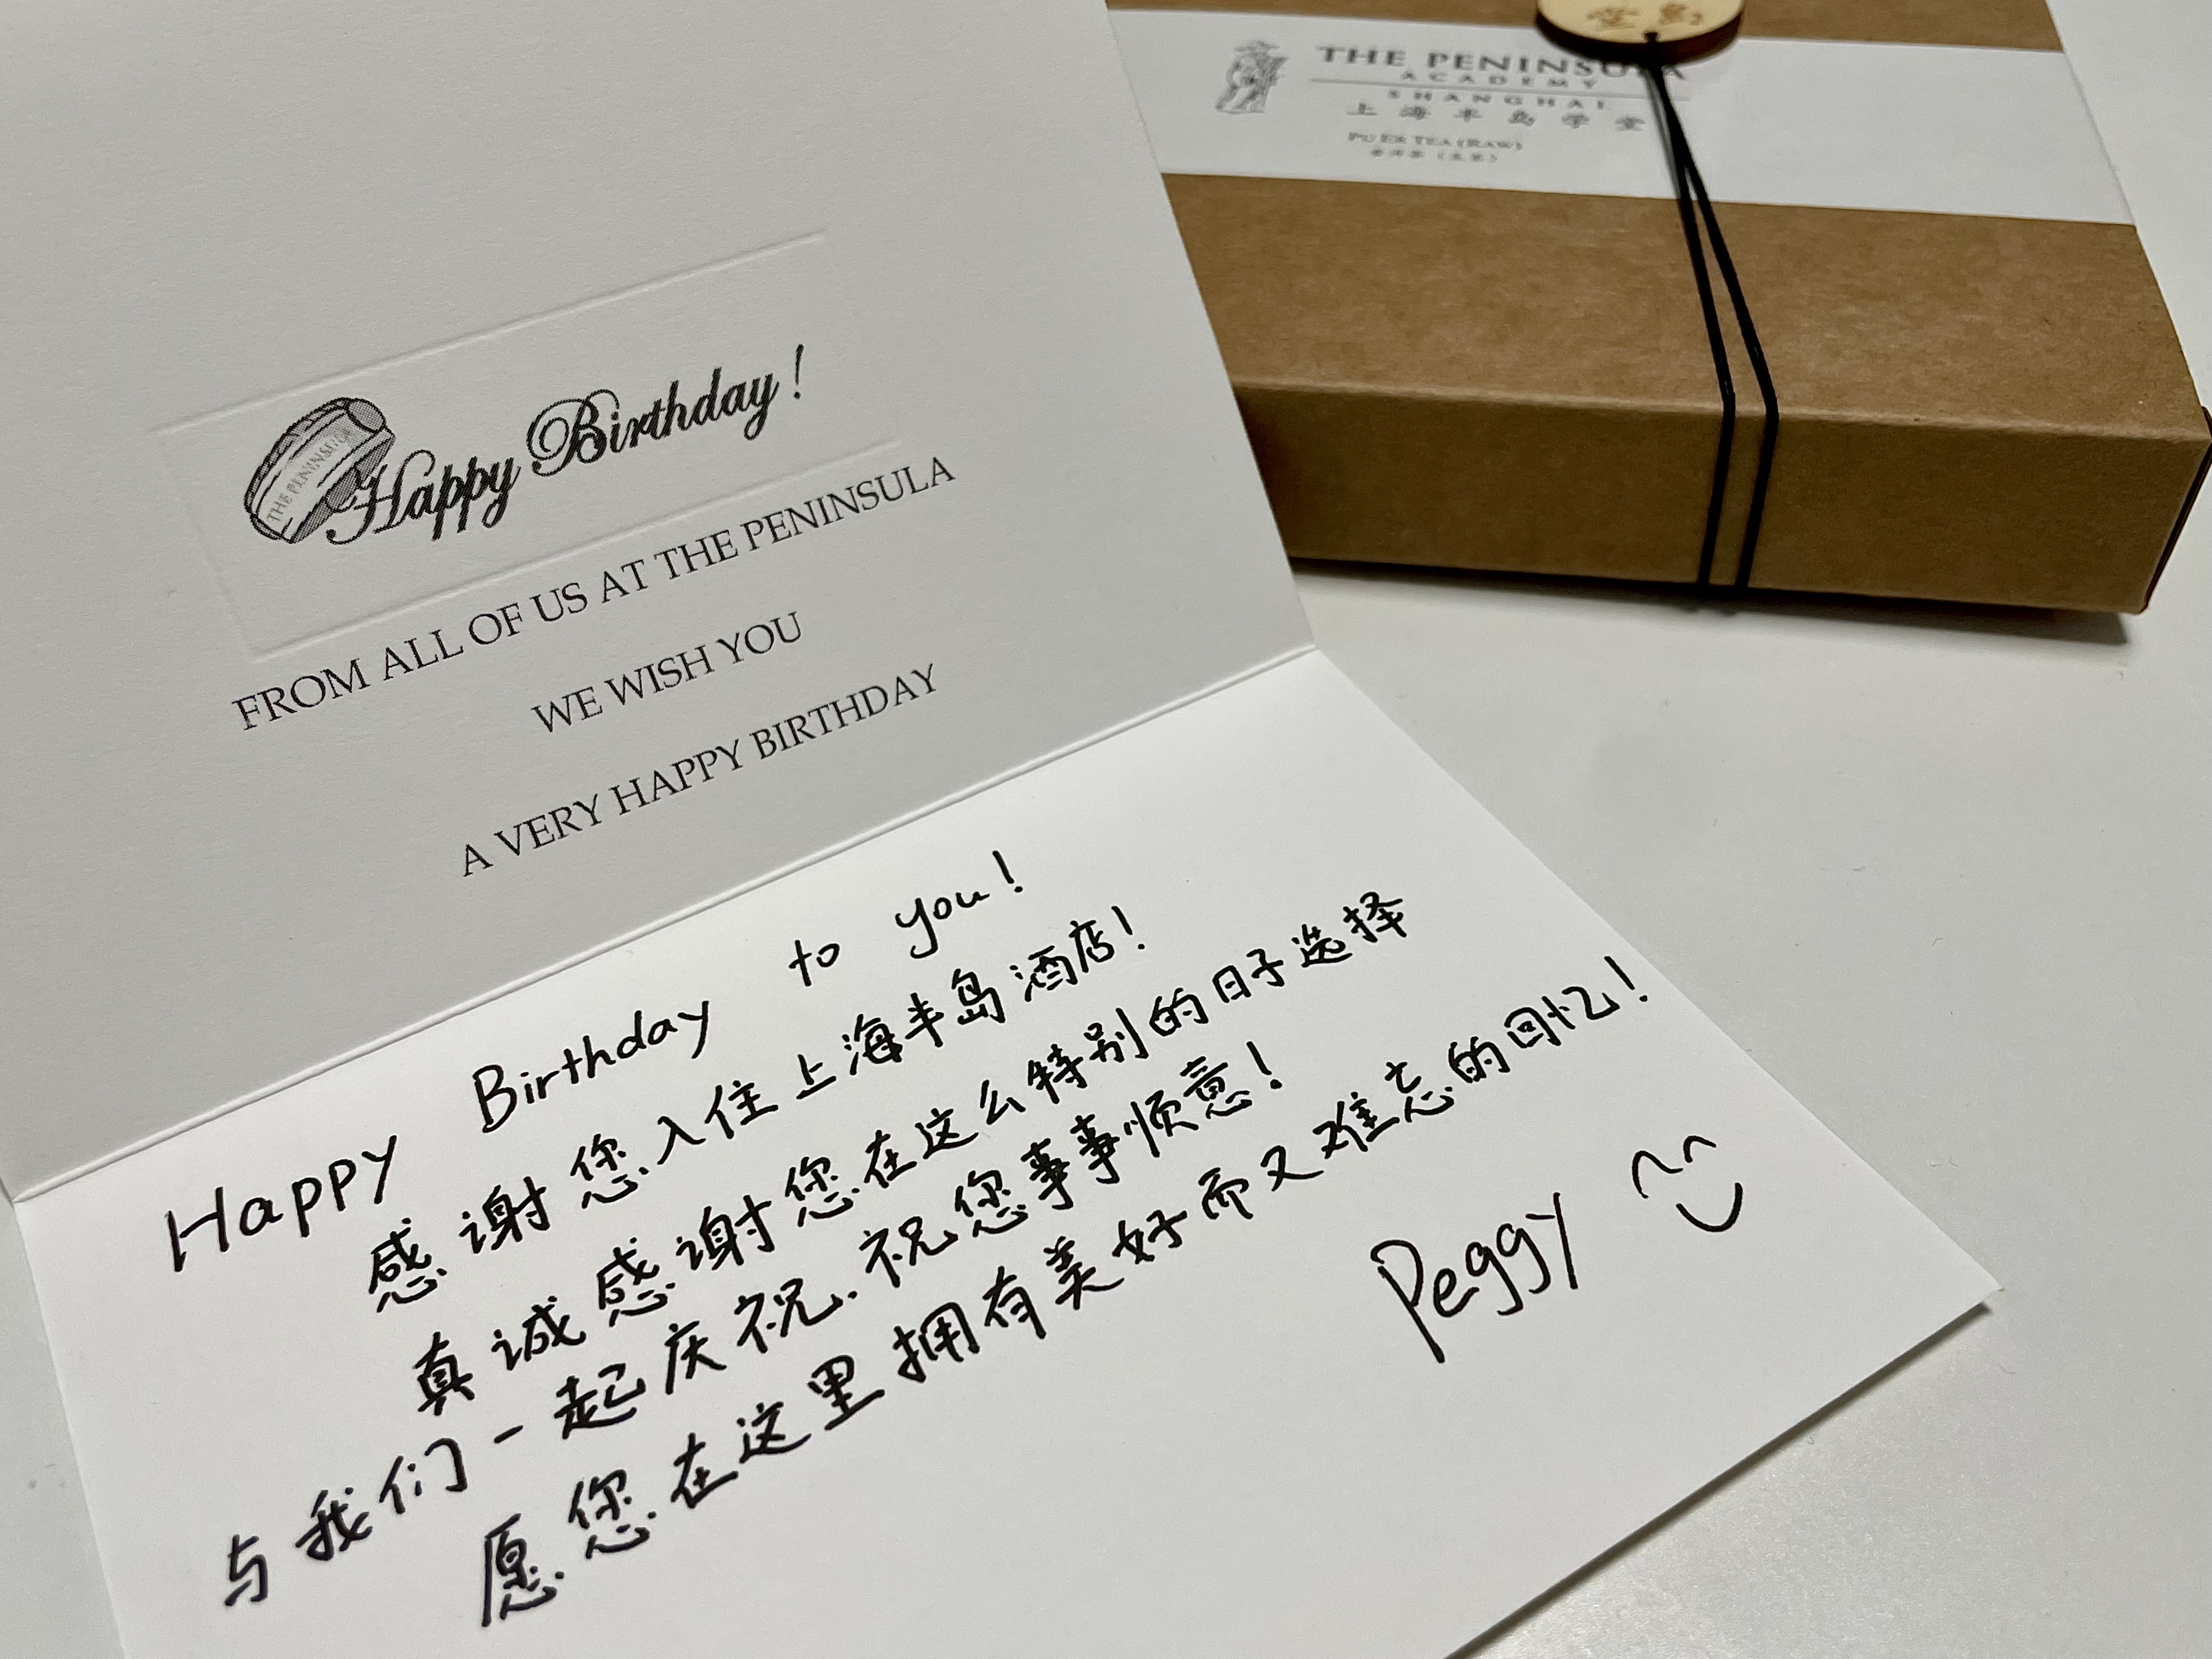 THE PENINSULA
Happy Birthday!
FROM ALL OF US AT THE PENINSULA
WE WISH YOU
A VERY HAPPY BIRTHDAY
Happy Birthday to you!
感谢您入住上海半岛酒店!
真诚感谢您在这么特别的日子选择
与我们一起庆祝.祝您事事顺意!
愿您在这里拥有美好而又难忘的回忆!
Peggy
THE PENINSULA
ACADEMY
SHANGHAI
上海半岛学堂
PU ER TEA (RAW)
普洱茶 (生茶)